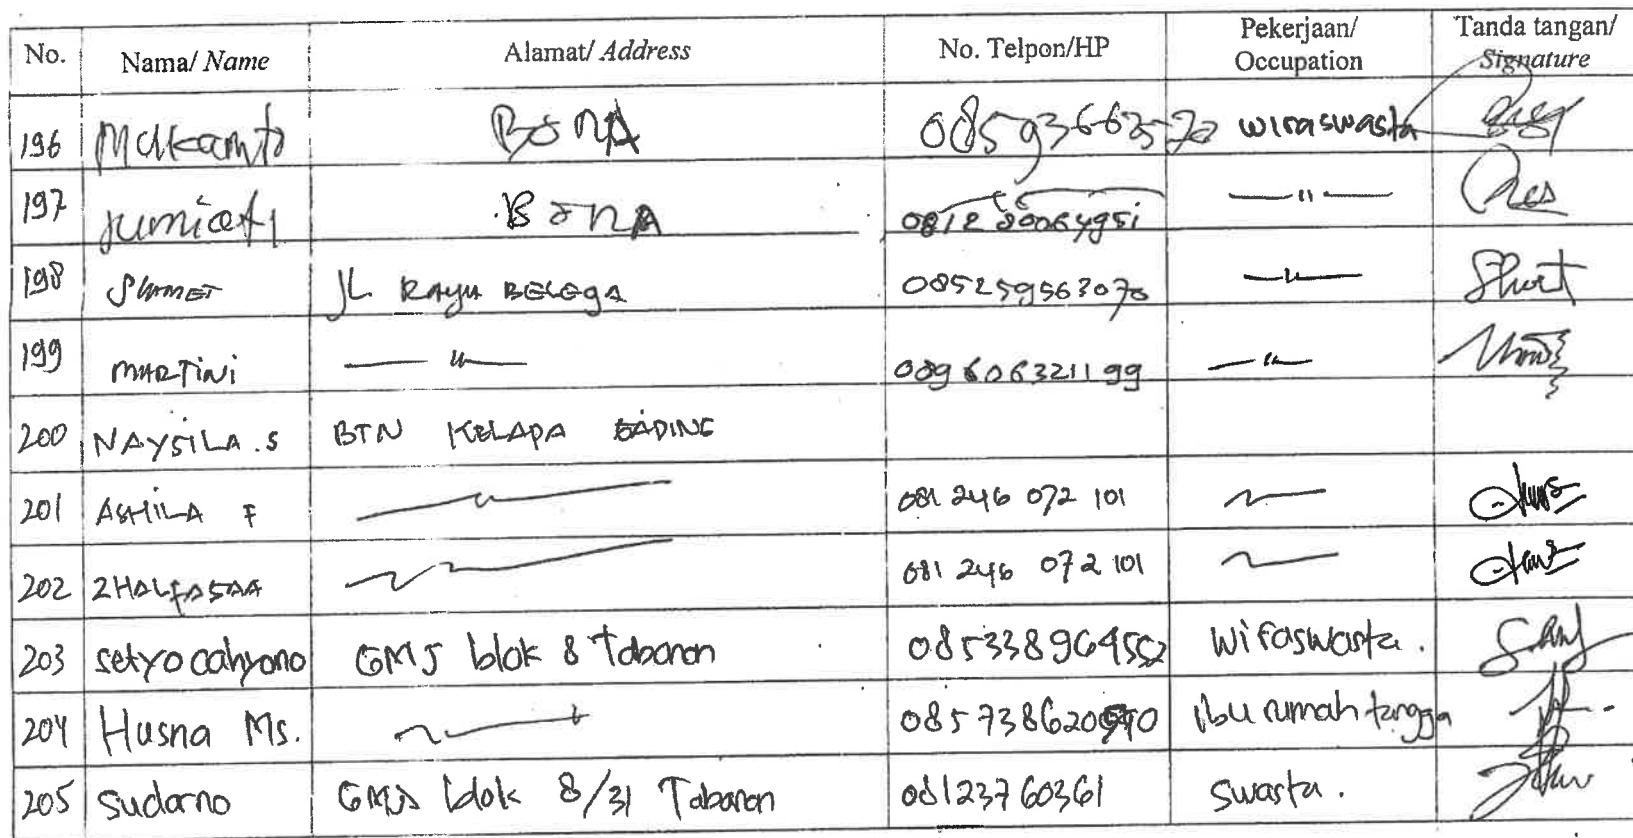 No. Nama/ Name Alamat/ Address No. Telpon/HP Pekerjaan/ Occupation Tanda tangan/ Signature
196 Mukamto BONA wiraswasta
197 Jumiati BONA —"—
198 SLAMET JL RAYA BELEGA 085259563070 —"—
199 MARTINI —"— —"—
200 NAYSILA .S BTN KELAPA GADING
201 ASHILA F 081 246 072 101
202 081 246 072 101
203 setyo cahyono GMJ blok 8 Tabanan 085338964552 wiraswasta.
204 Husna Ms. ibu rumah tangga
205 Sudarno GMJ blok 8/31 Tabanan 08123760361 swasta.